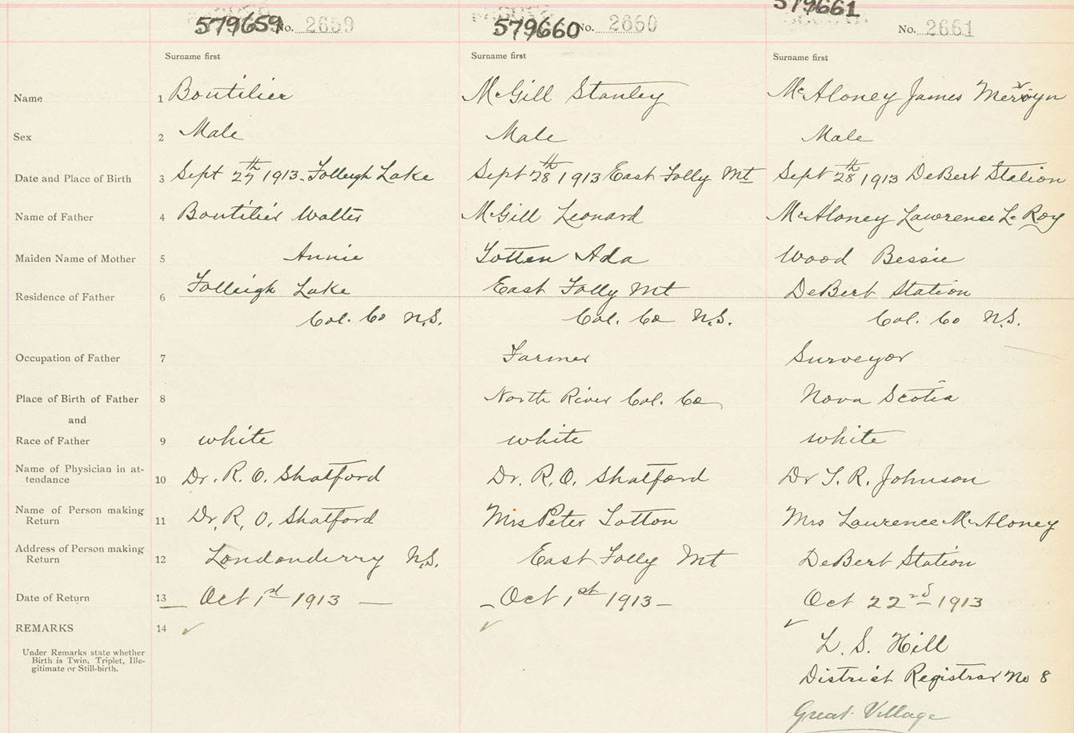 579659 No. 2659 579660 No. 2660 579661 No. 2661
Surname first Surname first Surname first
Name 1 Boutilier McGill Stanley McAloney James Mervyn
Sex 2 Male Male Male
Date and Place of Birth 3 Sept 27th 1913 - Folleigh Lake Sept 28th 1913 East Folly Mt Sept 28th 1913 DeBert Station
Name of Father 4 Boutilier Walter McGill Leonard McAloney Lawrence Le Roy
Maiden Name of Mother 5 Annie Totten Ada Wood Bessie
Residence of Father 6 Folleigh Lake East Folly Mt DeBert Station
Col. Co N.S. Col. Co N.S. Col. Co N.S.
Occupation of Father 7 Farmer Surveyor
Place of Birth of Father 8 North River Col. Co Nova Scotia
and
Race of Father 9 white white white
Name of Physician in at-
tendance 10 Dr. R. O. Shatford Dr. R. O. Shatford Dr T. R. Johnson
Name of Person making
Return 11 Dr. R. O. Shatford Mrs Peter Totton Mrs Laurence McAloney
Address of Person making
Return 12 Londonderry N.S. East Folly Mt DeBert Station
Date of Return 13 — Oct 1st 1913 — – Oct 1st 1913 – Oct 22nd 1913
REMARKS 14 ✓ ✓ ✓
L. S. Hill
Under Remarks state whether
Birth is Twin, Triplet, Ille-
gitimate or Still-birth.
District Registrar No 8
Great Village